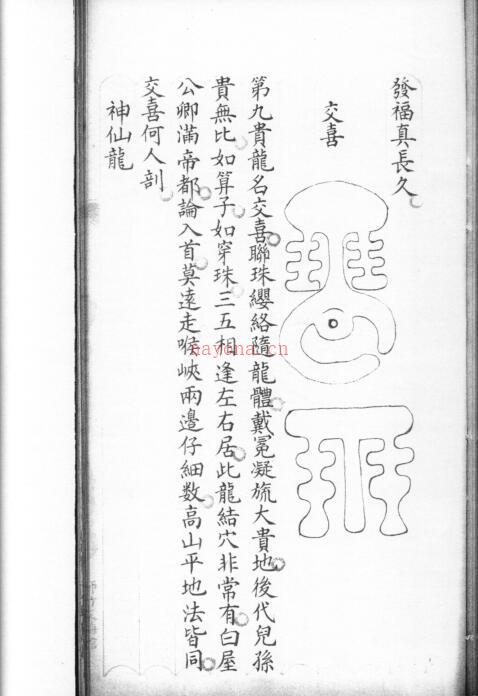 發福真長久
交喜
第九貴龍名交喜聯珠纓絡隨龍體戴冕凝旒大貴地後代兒孫
貴無比如算子如穿珠三五相逢左右居此龍結穴非常有白屋
公卿滿帝都論入首莫遠走喉峽兩邊仔細数高山平地法皆同
交喜何人剖
神仙龍
nayona.cn